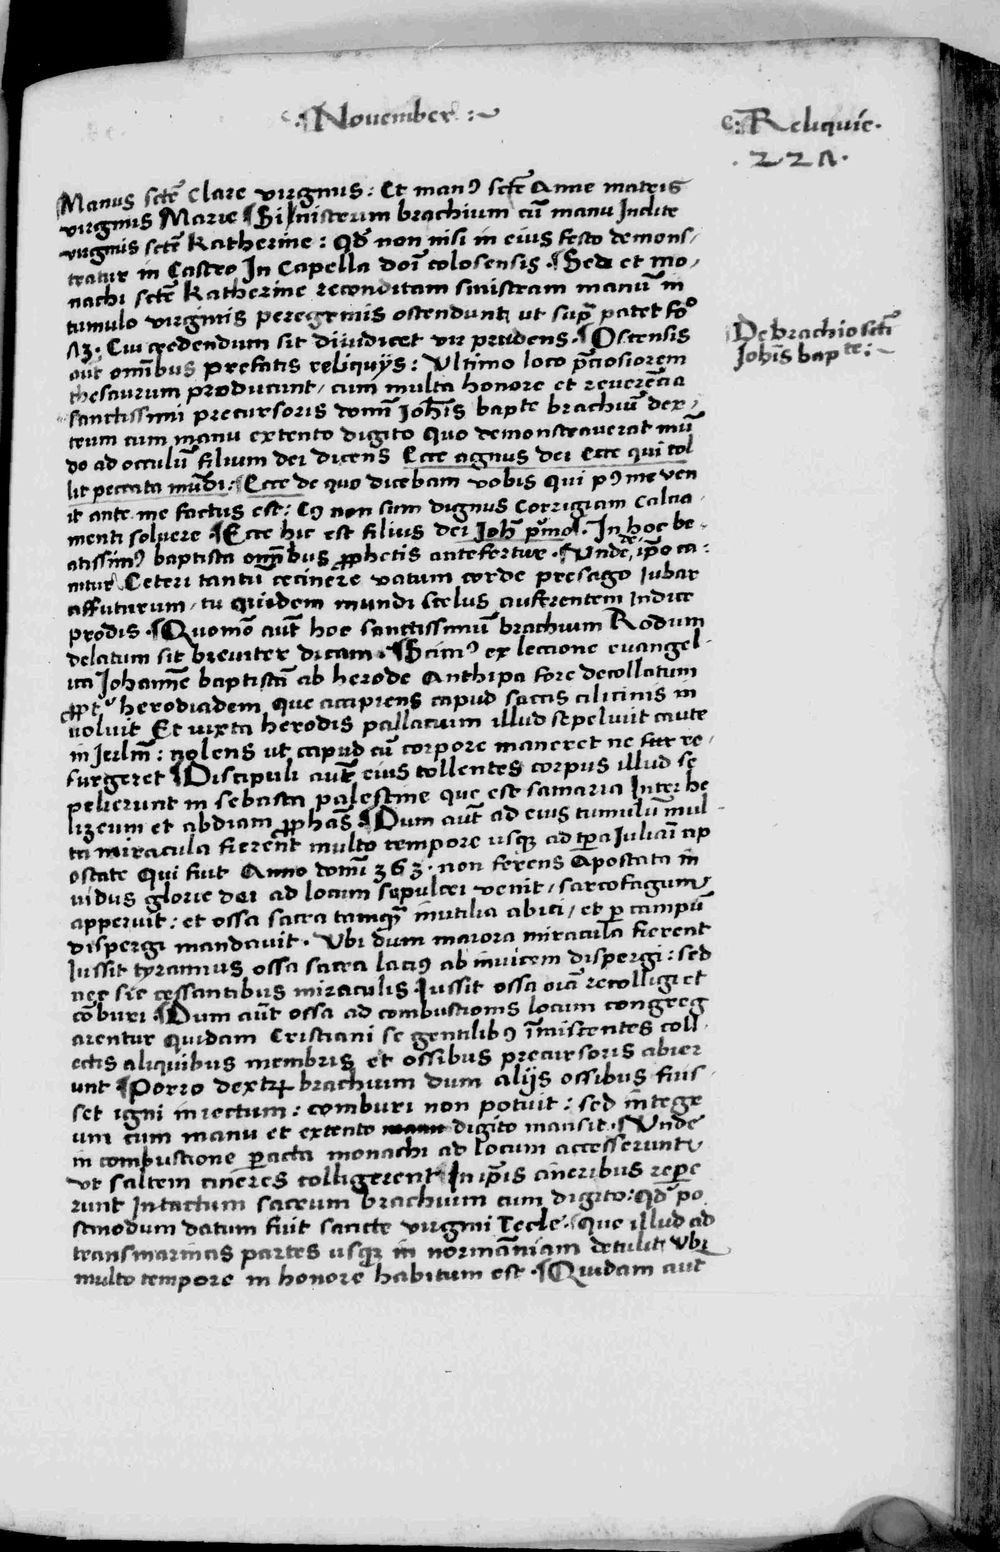 ·November :~
c: Reliquie·
· 2 2 Λ ·
Manus sctē Clare virginis : Et man⁹ sctē Anne matris
virginis Marie ¶ Sinistrum brachium cū manu Inclite
virginis sctē Katherine : Qd̄ non nisi in eius festo demons/
tratur in Castro In Capella doī colosensis · ¶ Sed et mo/
nachi sctē Katherine reconditam sinistram manū in
tumulo virginis peregrinis ostendunt, ut sup̄ patet fo°
Λ3 · Cui credendum sit diiudicet vir prudens · ¶ Ostensis
aūt om̄ibus prefatis reliquijs : Ultimo loco p̄ciosiorem
thesaurum producunt / cum multa honore et reverēcia
sanctissimi precursoris domī Joh̄is bapte brachiū dex/
trum cum manu extento digito quo demonstraverat mū
do ad occulū filium dei dicens Ecce agnus dei Ecce qui tol
lit peccata mūdi : ¶ Ecce de quo dicebam vobis qui p⁹ me ven
it ante me factus est : C⁹ non sum dignus Corrigiam Calcia ·
menti solvere ¶ Ecce hic est filius dei Joh̄ p̄mo · In hoc be ·
atissim⁹ baptista om̄ibus ꝓphetis antefertur · ¶ Unde de ip̄o ca :
nitur Ceteri tantū cecinere vatum corde presago Iubar
affuturum / tu quidem mundi scelus auferentem Indice
prodis · ¶ Quomō aūt hoc sanctissimū brachium Rodum
delatum sit breviter dicam · ¶ Scim⁹ ex leccione evangel ·
ica Johannē baptistā ab herode Anthipa fore decollatum
ꝓpt⁹ herodiadem que accipiens capud saccis cilicinis in
volvit Et iuxta herodis pallacium illud sepelivit caute
in Jerl̄m : nolens ut capud cū corpore maneret ne fur re/
surgeret ¶ Discipuli aūt eius tollentes corpus illud se
pelierunt in sebasta palestine que est samaria Inter he
lizeum et abdiam ꝓphās ¶ Dum aūt ad eius tumulū mul ·
ta miracula fierent multo tempore usqꝫ ad tp̄a Juliāi ap
ostate Qui fuit Anno domī 363 · non ferens Apostata in
vidus glorie dei ad locum sepulcri venit / sarcofagum
apperuit : et ossa sacra tamqꝫ inutilia abici / et ꝑ campū
dispergi mandavit · Ubi dum maiora miracula fierent
Iussit tyrannus ossa sacra laci⁹ ab invicem dispergi : sed
nec sic cessantibus miraculis Iussit ossa oīa recolligi et
cōburi ¶ Dum aūt ossa ad combustionis locum congreg
arentur Quidam Cristiani se gentilib⁹ īmiscentes coll ·
ectis aliquibus membris et ossibus precursoris abier
unt ¶ Porro dextrꝝ brachium dum alijs ossibus fuis ·
set igni iniectum : comburi non potuit : sed integr
um cum manu et extento digito mansit · ¶ Unde
in combustione ꝑacta monachi ad locum accesserunt
vt saltem cineres colligerent In ip̄is cineribus repe
runt Intactum sacrum brachium cum digito : Qd̄ po
stmodum datum fuit sancte virgini Tecle · ¶ Que illud ad
transmarinas partes usqꝫ in normāniam detulit, Ubi
multo tempore in honore habitum est · ¶ Quidam aut
De brachio scti
Joh̄is bapte : ~